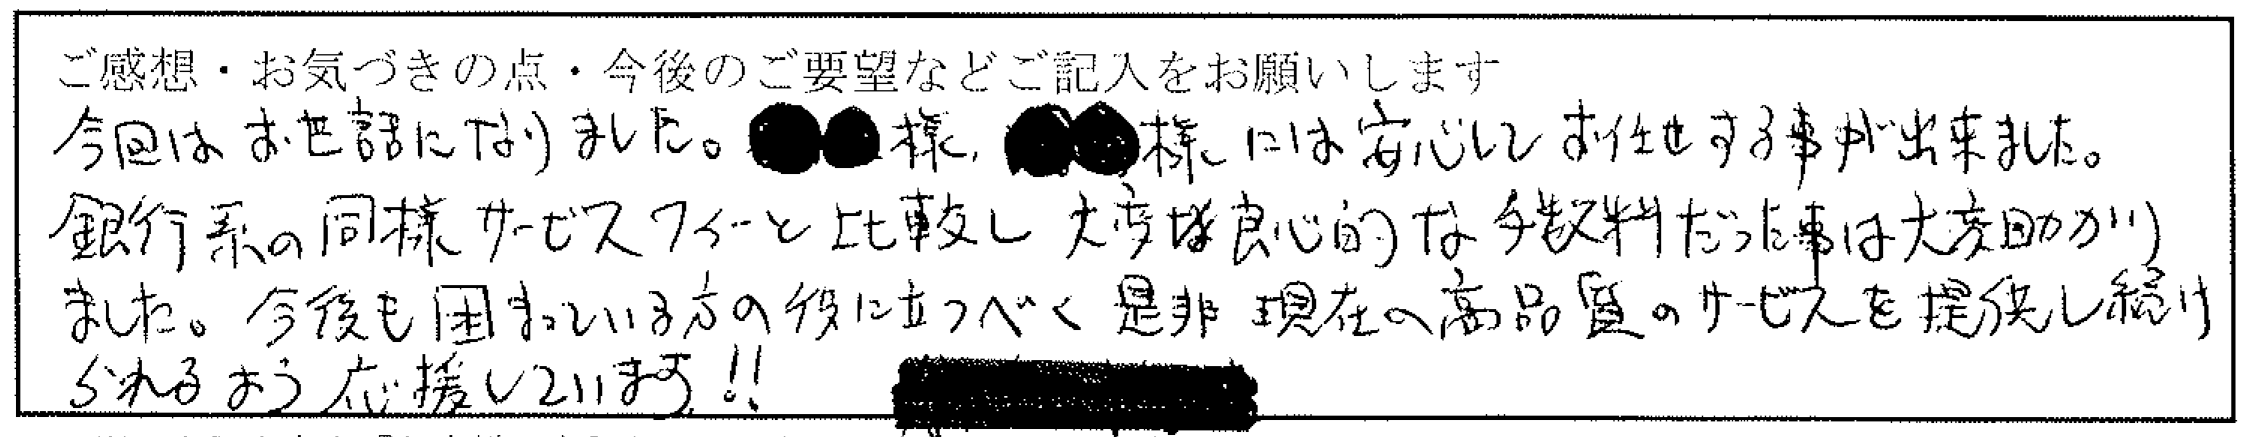 ご感想・お気づきの点・今後のご要望などご記入をお願いします
今回はお世話になりました。●●様、●●様には安心してお任せする事が出来ました。
銀行系の同様サービスフィーと比較し大変良心的な手数料だった事は大変助かり
ました。今後も困まっている方の役に立つべく是非現在の高品質のサービスを提供し続け
られるよう応援しています!!